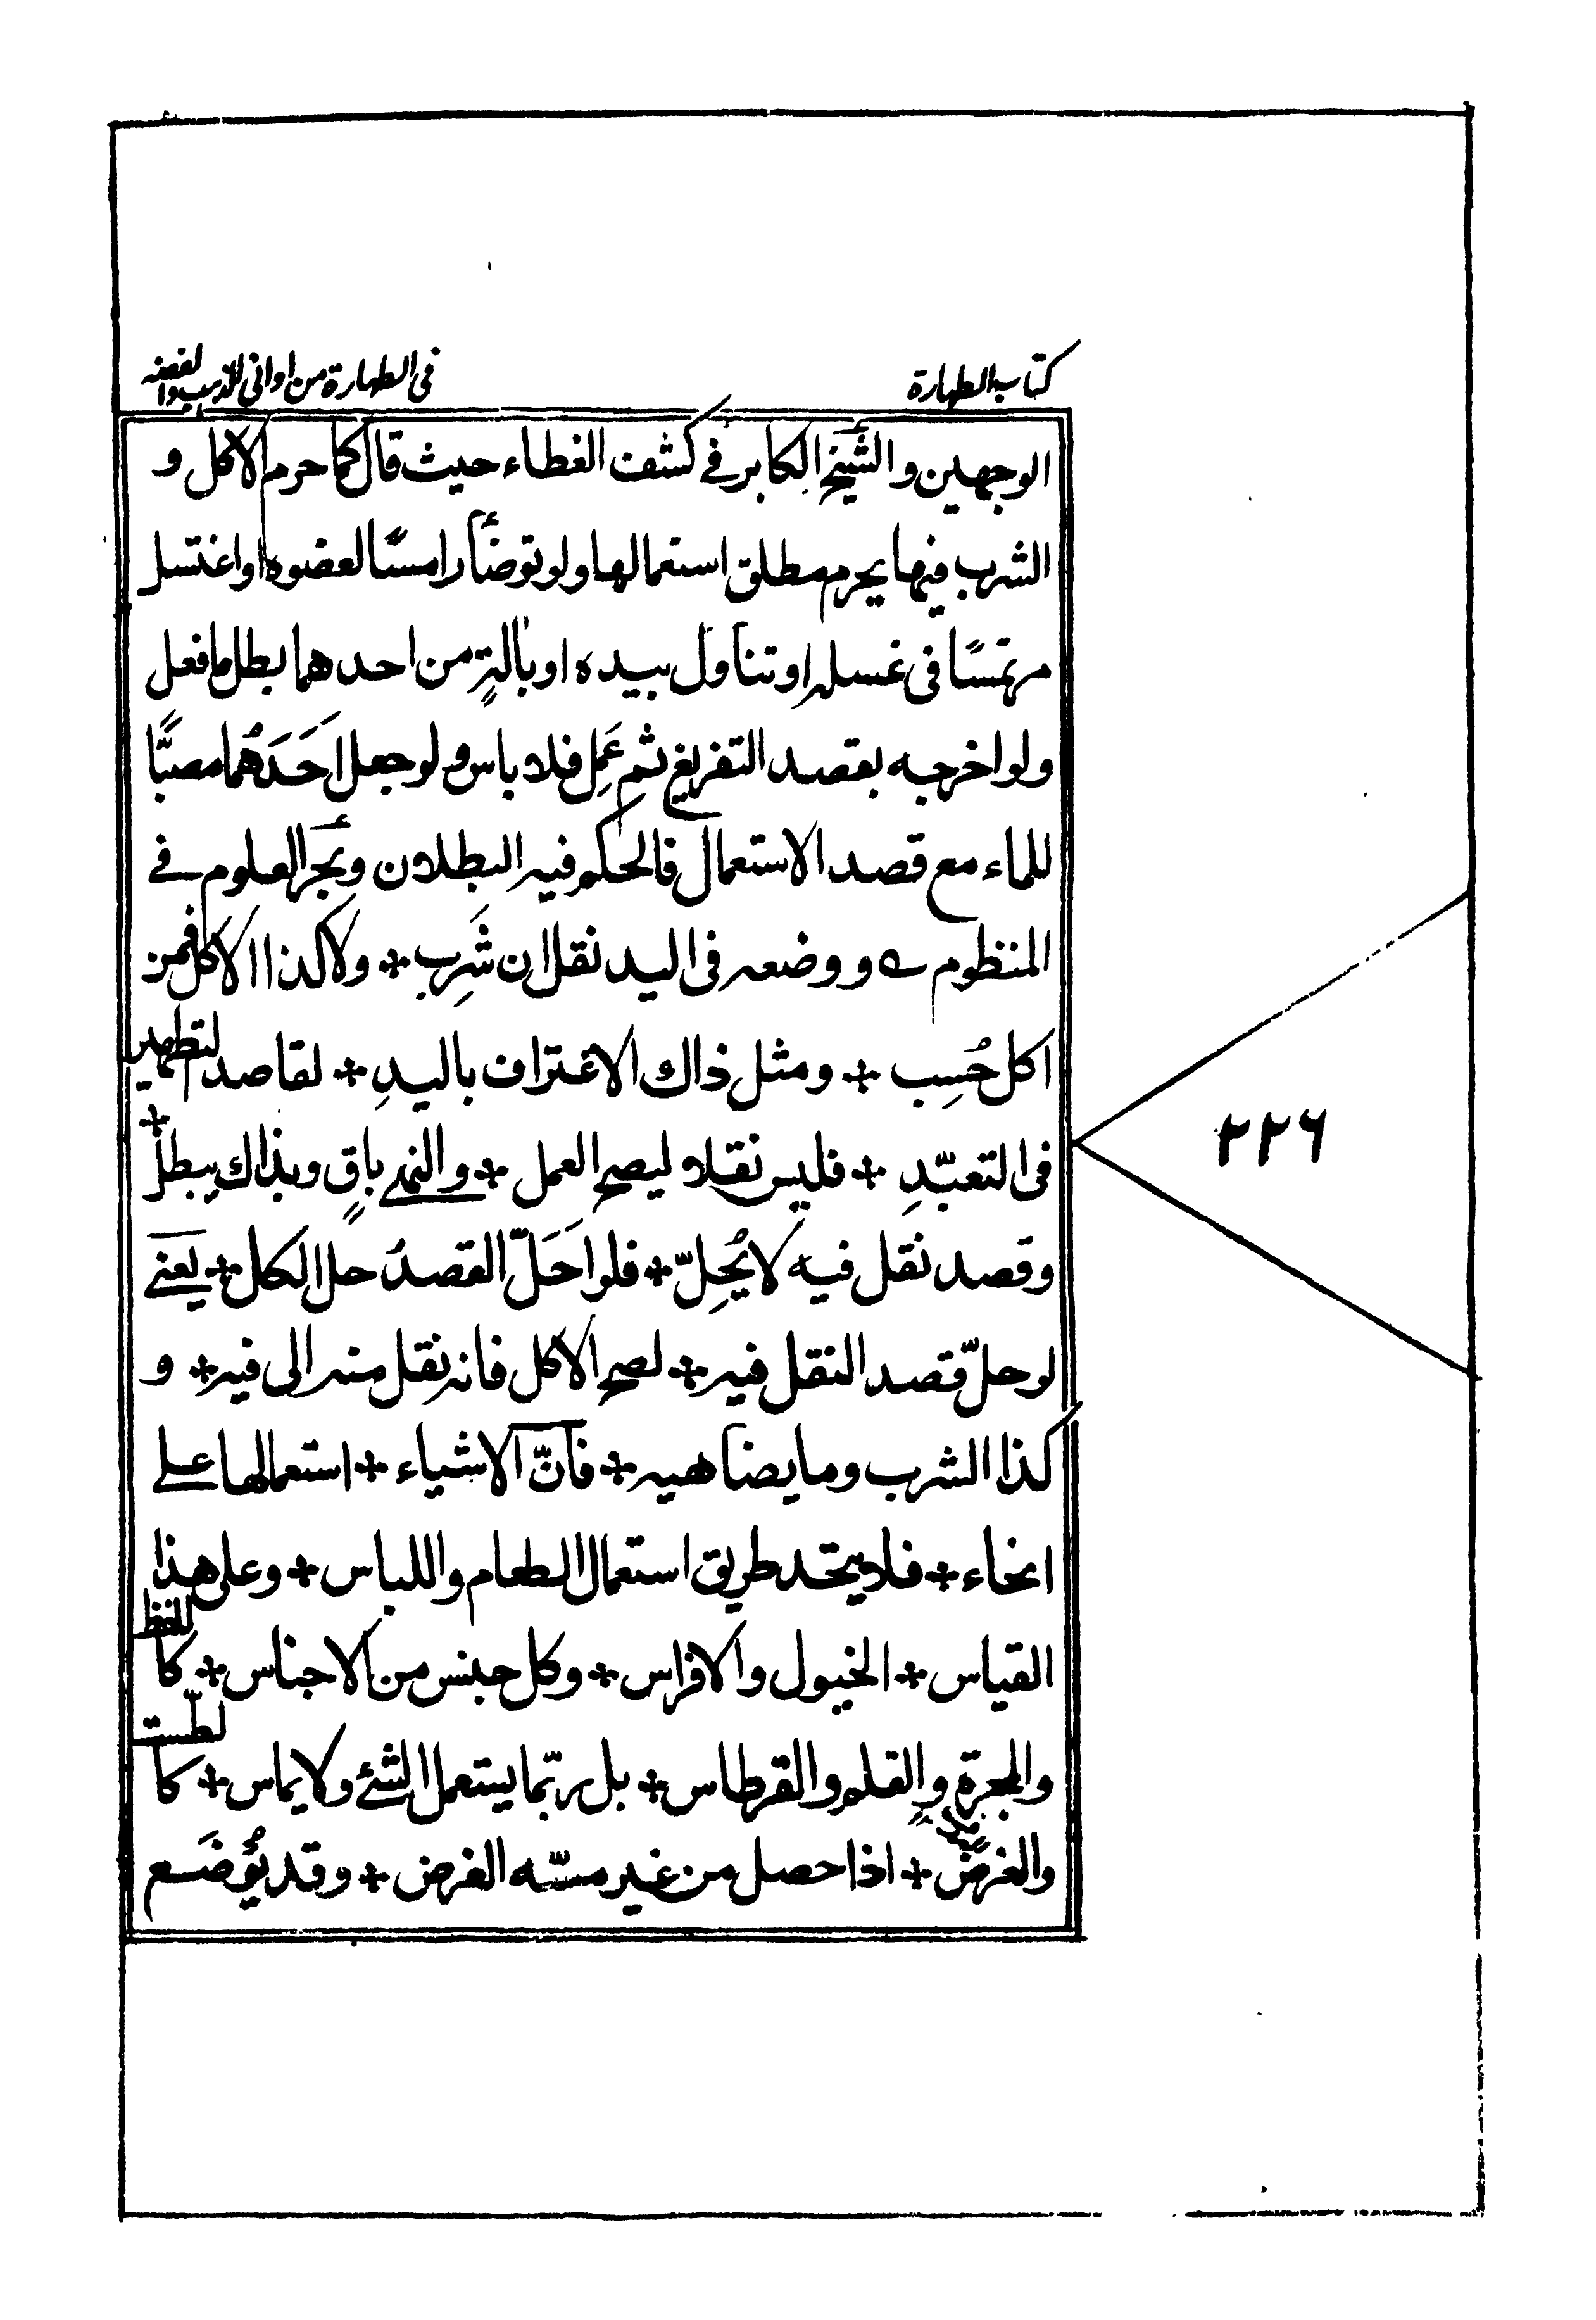 كتاب الطهارة
في الطهارة من اواني الذهب والفضه
الوجهين والشيخ الكابر في كشف الغطاء حيث قال كما حرم الاكل و
الشرب فيها يحرم مطلق استعمالها ولو توضأ رامسًا لعضوه او اغتسل
مرتمسًا في غسله او تناول بيده او بآلةٍ من احدهما بطل ما فعل
ولو اخرجه بقصد التفريغ ثم عَمِل فلا باس ولو جعل اَحَدَهُما مصبًّا
للماء مع قصد الاستعمال فالحكم فيه البطلان وبحر العلوم في
المنظومے و وضعه في اليد نقل ان شَرِب ٭ ولا كذا الاكل فمن
اكل حُسِب ٭ ومثل ذاك الاغتراف باليدِ ٭ لقاصد لتطهير
٭
في التعبّدِ ٭ فليس نقلا ليصح العمل ٭ والنهے باقٍ وبذاك يبطل
وقصد نقل فيه لا يُحِلّ ٭ فلو اَحَلّ القصدُ حل الكل ٭ يعنے
لو حلّ قصد النقل فيه ٭ لصح الاكل فانه نقل منه الى فيه ٭ و
كذا الشرب وما يضاهيه ٭ فانّ الاشياء ٭ استعمالها علے
انحاء ٭ فلا يتحد طريق استعمال الطعام واللباس ٭ وعلى هذا
القياس ٭ الخيول والافراس ٭ وكل جنس من الاجناس ٭ كا للفظ
والمجرة والقلم والقرطاس ٭ بل ربّما يستعمل الشئے ولا يماس ٭ كا لطست
والغرض ٭ اذا حصل من غير مسّه الغرض ٭ وقد يُوضَع
٢٢٦